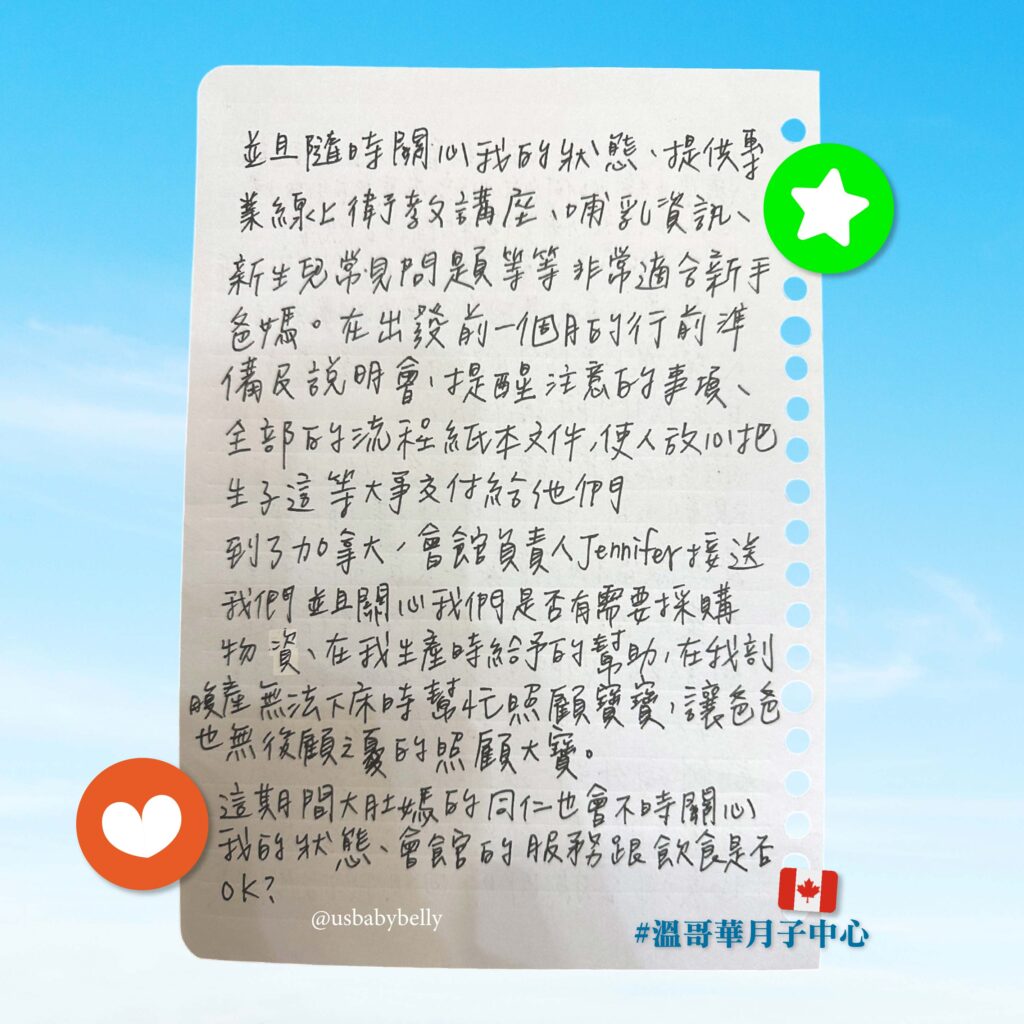 並且隨時關心我的狀態、提供專
業線上衛教講座、哺乳資訊、
新生兒常見問題等等非常適合新手
爸媽。在出發前一個月的行前準
備及說明會,提醒注意的事項、
全部的流程紙本文件,使人放心把
生子這等大事交付給他們
到了加拿大,會館負責人Jennifer接送
我們並且關心我們是否有需要採購
物資、在我生產時給予的幫助,在我剖
腹產無法下床時幫忙照顧寶寶,讓爸爸
也無後顧之憂的照顧大寶。
這期間大肚媽的同仁也會不時關心
我的狀態、會館的服務跟飲食是否
OK?
@usbabybelly
#溫哥華月子中心